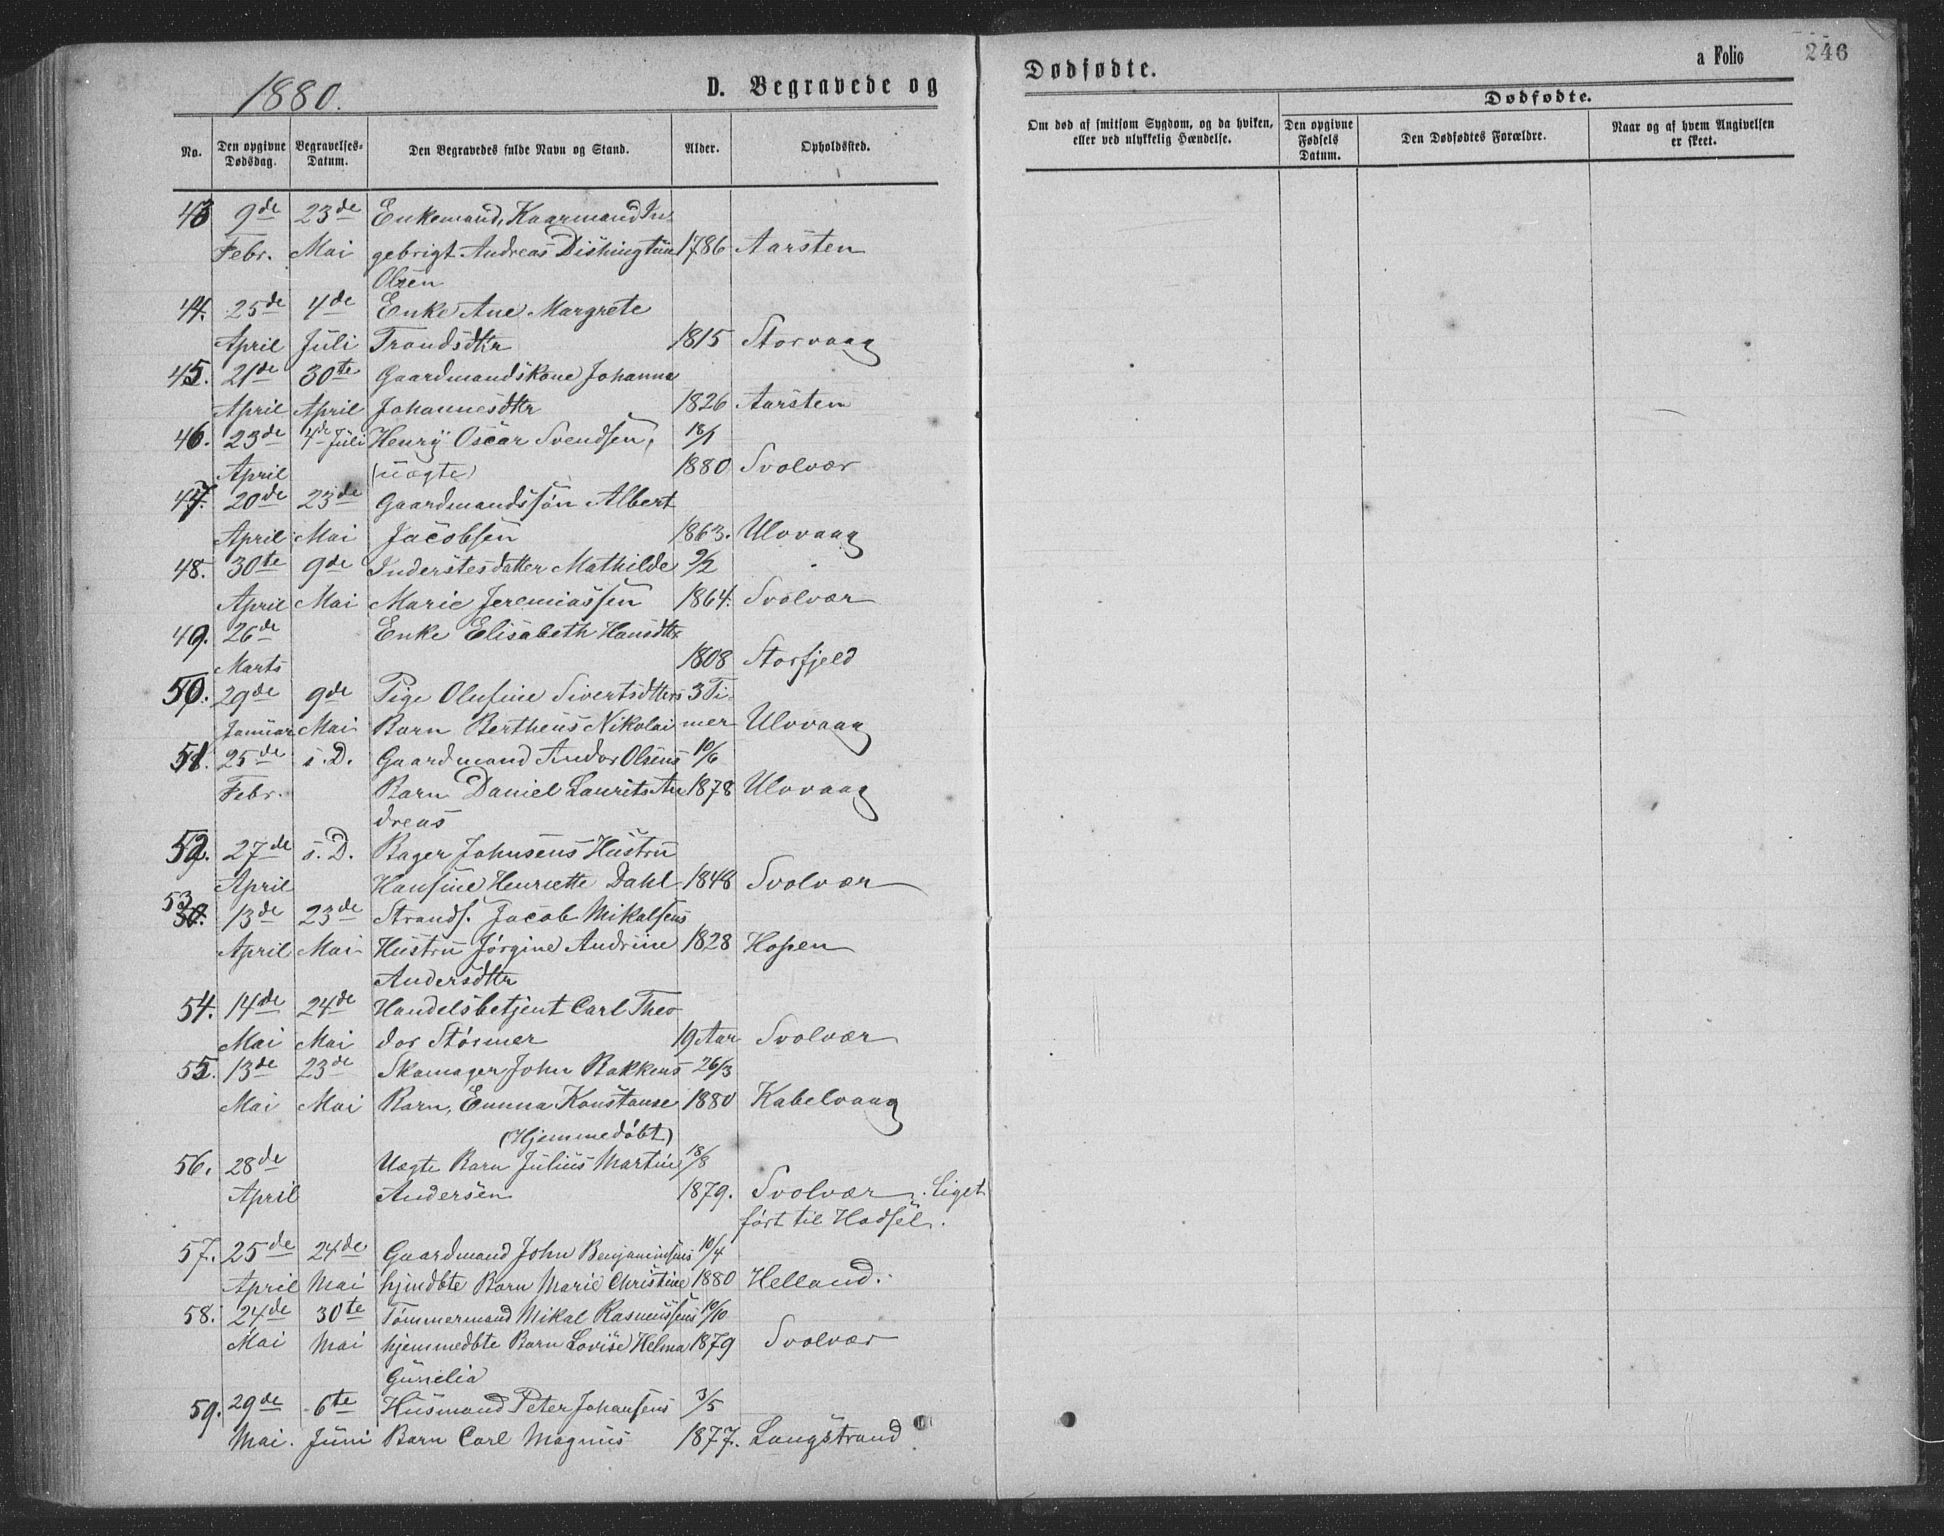 1880.
D. Begravede og
Dødfødte.
a Folio
246
No.
Den opgivne Dødsdag.
Begravelses-Datum.
Den Begravedes fulde Navn og Stand.
Alder.
Opholdssted.
Om død af smitsom Sygdom, og da hvilken, eller ved ulykkelig Hændelse.
Dødfødte.
Den opgivne Fødsels Datum.
Den Dødfødtes Forældre.
Naar og af hvem Angivelsen er skeet.
43 9de 23de Enkemand, Kaarmand In-
Febr. Mai gebrigt Andreas Dishington 1786 Aarsten
Olsen
44. 25de 4de Enke Ane Margrete
April Juli Trondsdtr 1815 Storvaag
45. 21de 30te Gaardmandskone Johanna
April April Johannesdtr 1826 Aarsten
46. 23de 4de Juli Henry Oscar Svendsen, 18/1
April (uægte) 1880 Svolvær
47. 20de 23de Gaardmandssøn Albert
April Mai Jacobsen 1863. Ulvvaag
48. 30te 9de Inderstesdatter Mathilde 9/2
April Mai Marie Jeremiassen 1864. Svolvær
49. 26de Enke Elisabeth Hansdtr
Marts 1808 Storfjeld
50. 29de 9de Pige Olufine Sivertsdtters 3 Ti-
Januar Mai Barn Bertheus Nikolai mer Ulvvaag
51. 25de s. D. Gaardmand Andor Olsens 10/6
Febr. Barn Daniel Laurits An 1878 Ulvvaag
dreas
52. 27de s. D. Bager Johnsens Hustru
April Hansine Henriette Dahl 1848 Svolvær
53. 13de 23de Strands. Jacob Mikalsens
April Mai Hustru Jørgine Andrine 1828 Hopen
Andersdtr
54. 14de 24de Handelsbetjent Carl Theo
Mai Mai dor Størmer 19 Aar Svolvær
55. 13de 23de Skomager John Bakkens 26/3
Mai Mai Barn, Emma Konstanse 1880 Kabelvaag
(Hjemmedøbt)
56. 28de Uægte Barn Julius Martin 18/8
April Andersen 1879. Svolvær. Liget
ført til Hadsel.
57. 25de 24de Gaardmand John Benjaminsens 10/4
April Mai hjmdbte Barn Marie Christine 1880 Helland.
58. 24de 30te Tømmermand Mikal Rasmussens 10/10
Mai Mai hjemmedbte Barn Lovise Helma 1879 Svolvær
Gunelia
59. 29de 6te Husmand Peter Johansens 3/5
Mai. Juni Barn Carl Magnus 1877. Langstrand